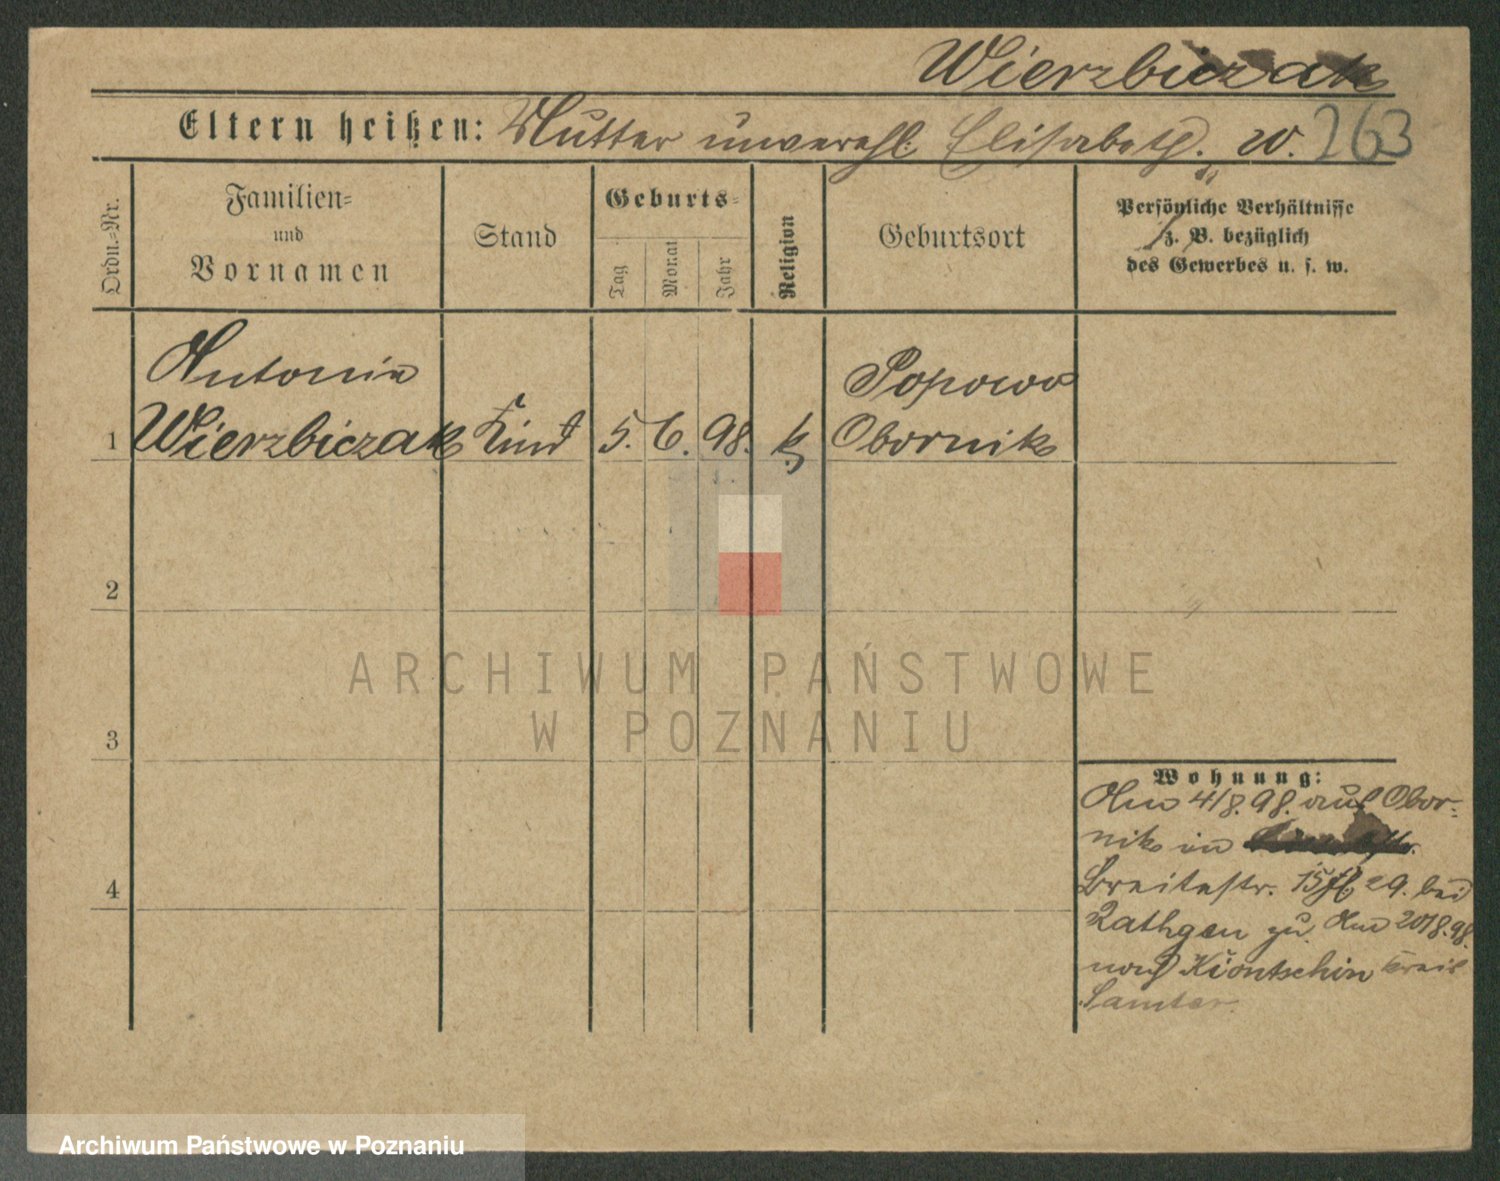 Wierzbiczak
Eltern heißen: Mutter unverehl. Elisabeth. W. 263
Ordn.-Nr.
Familien-
und
Vornamen
Stand
Geburts-
Tag
Monat
Jahr
Religion
Geburtsort
Persönliche Verhältnisse
z. B. bezüglich
des Gewerbes u. s. w.
Antonin
Popowo
1 Wierzbiczak Kind 5. 6. 98. k. Obornik
2
ARCHIWUM PAŃSTWOWE
W POZNANIU
3
Wohnung:
Am 4/8.98. aus Obor-
nik in
4
Breitestr. 15 bei
Rathgen zu. Am 20/8.98.
nach Kiontschin Kreis
Samter.
Archiwum Państwowe w Poznaniu